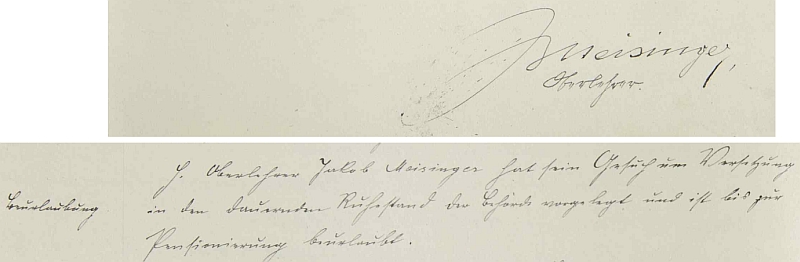 JMeisinger,
Oberlehrer.
H. Oberlehrer Jakob Meisinger hat sein Gesuch um Versetzung
Beurlaubung in den dauernden Ruhestand der Behörde vorgelegt und ist bis zur
Pensionierung beurlaubt.